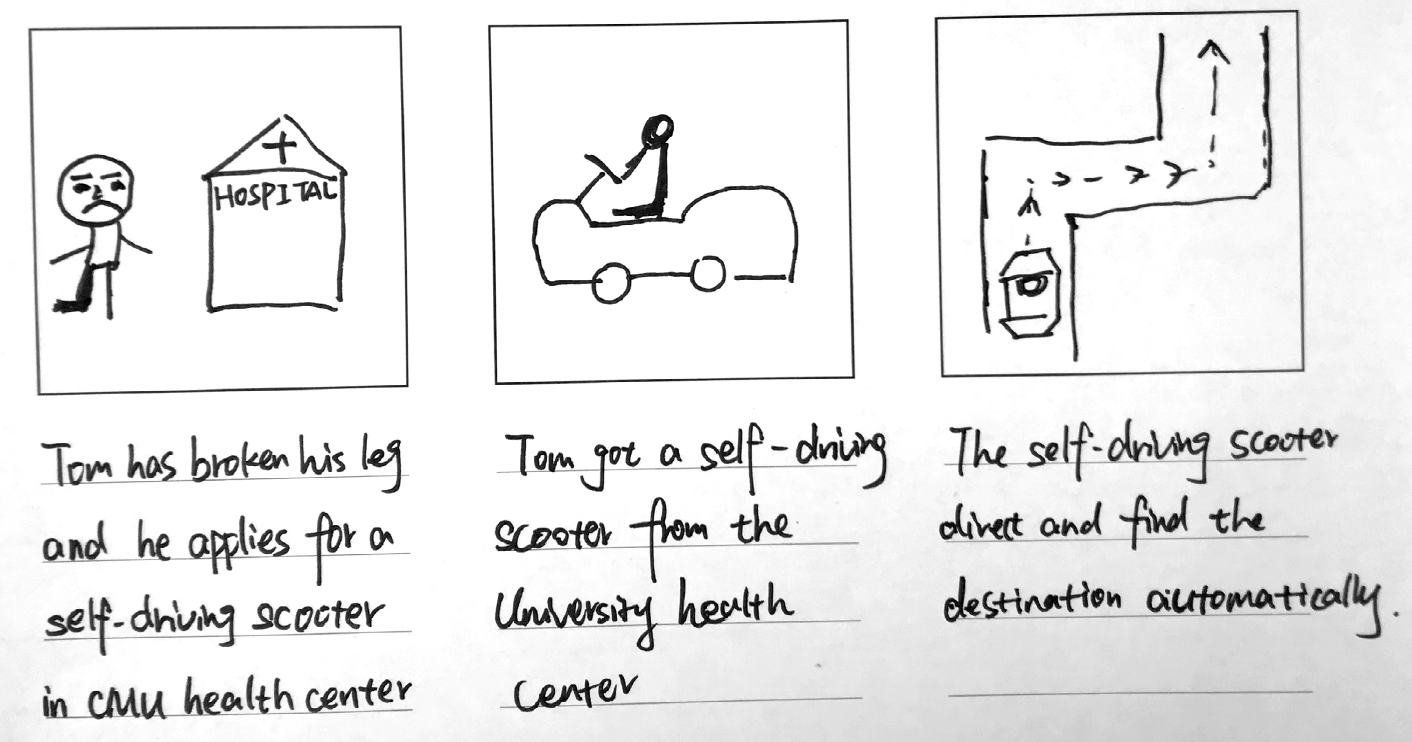 HOSPITAL
Tom has broken his leg
and he applies for a
self-driving scooter
in CMU health center
Tom got a self-driving
scooter from the
University health
center
The self-driving scooter
direct and find the
destination automatically.